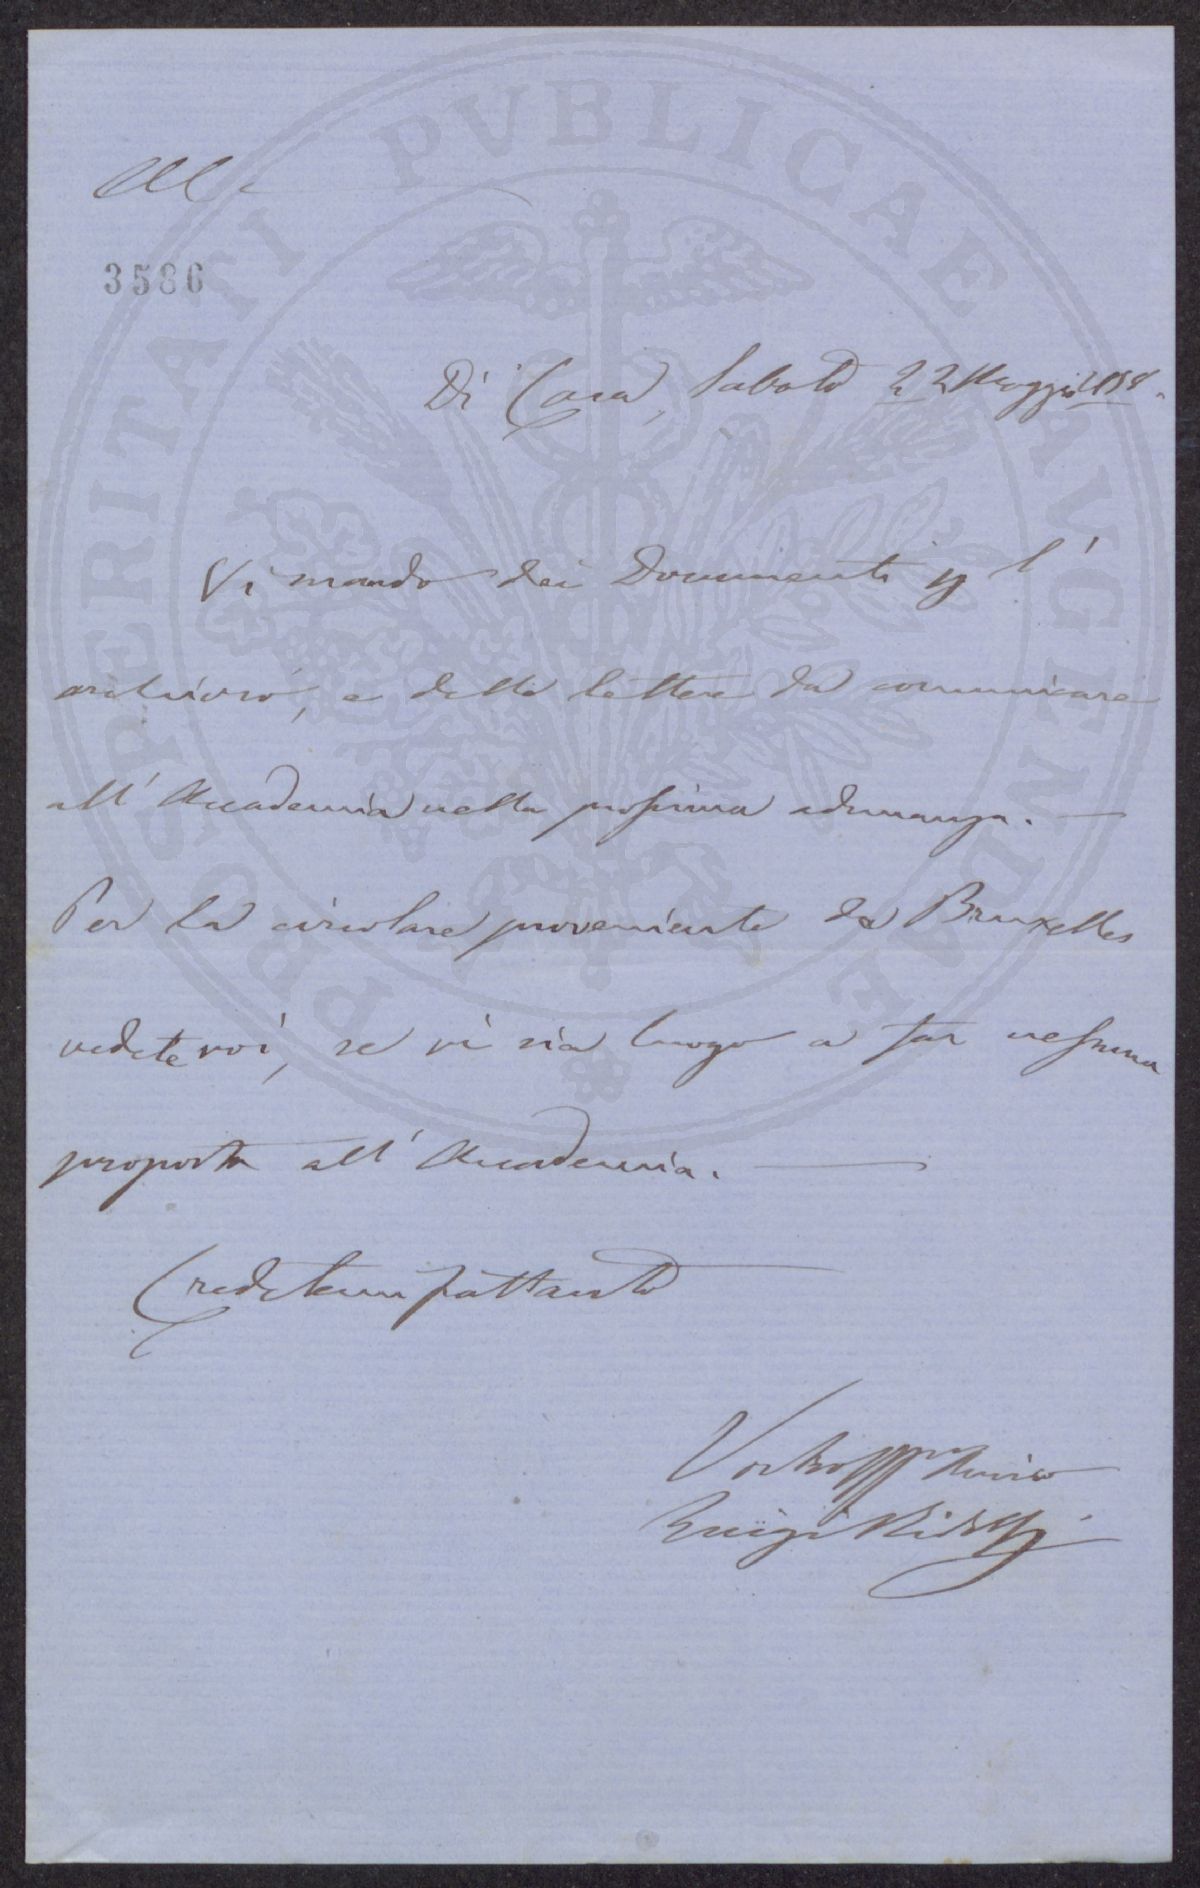 PROSPERITATI PUBLICAE AVGENDAE
3586
Di Casa, Sabato 22 Maggio 1858.
Vi mando dei Documenti p l'
archivio, e delle lettere da comunicare
all' Accademia nella prossima adunanza. —
Per la circolare proveniente da Bruxelles
vedete voi, se vi sia luogo a far nessuna
proposta all' Accademia. —
Credetemi frattanto
Vostro Amico
Luigi Ridolfi